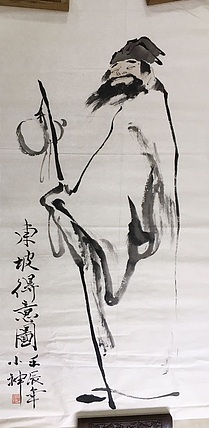 東坡得意圖
壬辰年
小坤